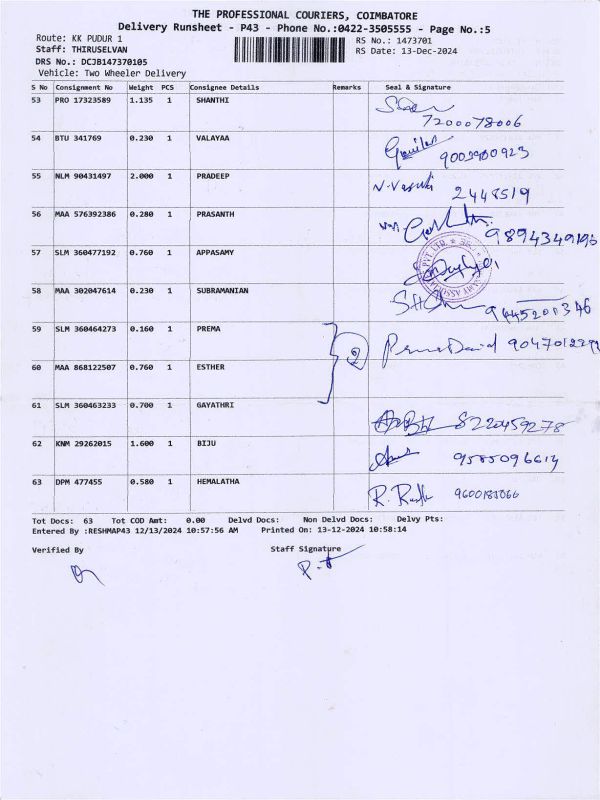 THE PROFESSIONAL COURIERS, COIMBATORE
Delivery Runsheet - P43 - Phone No.:0422-3505555 - Page No.:5
Route: KK PUDUR 1 RS No.: 1473701
Staff: THIRUSELVAN RS Date: 13-Dec-2024
DRS No.: DCJB147370105
Vehicle: Two Wheeler Delivery
S No Consignment No Weight PCS Consignee Details Remarks Seal & Signature
53 PRO 17323589 1.135 1 SHANTHI
7200078006
54 BTU 341769 0.230 1 VALAYAA
55 NLM 90431497 2.000 1 PRADEEP N. Vasuki 2448519
56 MAA 576392386 0.280 1 PRASANTH
57 SLM 360477192 0.760 1 APPASAMY
58 MAA 302047614 0.230 1 SUBRAMANIAN
59 SLM 360464273 0.160 1 PREMA 2
60 MAA 868122507 0.760 1 ESTHER
61 SLM 360463233 0.700 1 GAYATHRI 8220459278
62 KNM 29262015 1.600 1 BIJU 9585096614
63 DPM 477455 0.580 1 HEMALATHA
Tot Docs: 63 Tot COD Amt: 0.00 Delvd Docs: Non Delvd Docs: Delvy Pts:
Entered By :RESHMAP43 12/13/2024 10:57:56 AM Printed On: 13-12-2024 10:58:14
Verified By Staff Signature